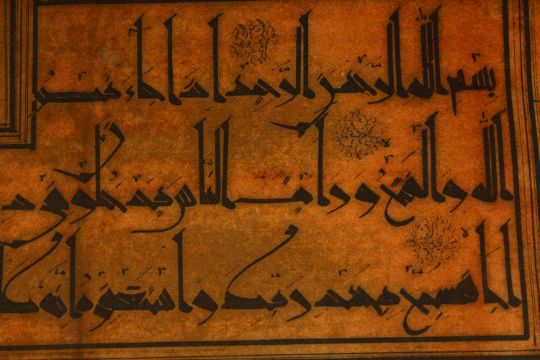 بسم الله الرحمن الرحيم اذا جاء نصر
الله والفتح ورايت الناس يدخلون
فسبح بحمد ربك واستغفره انه